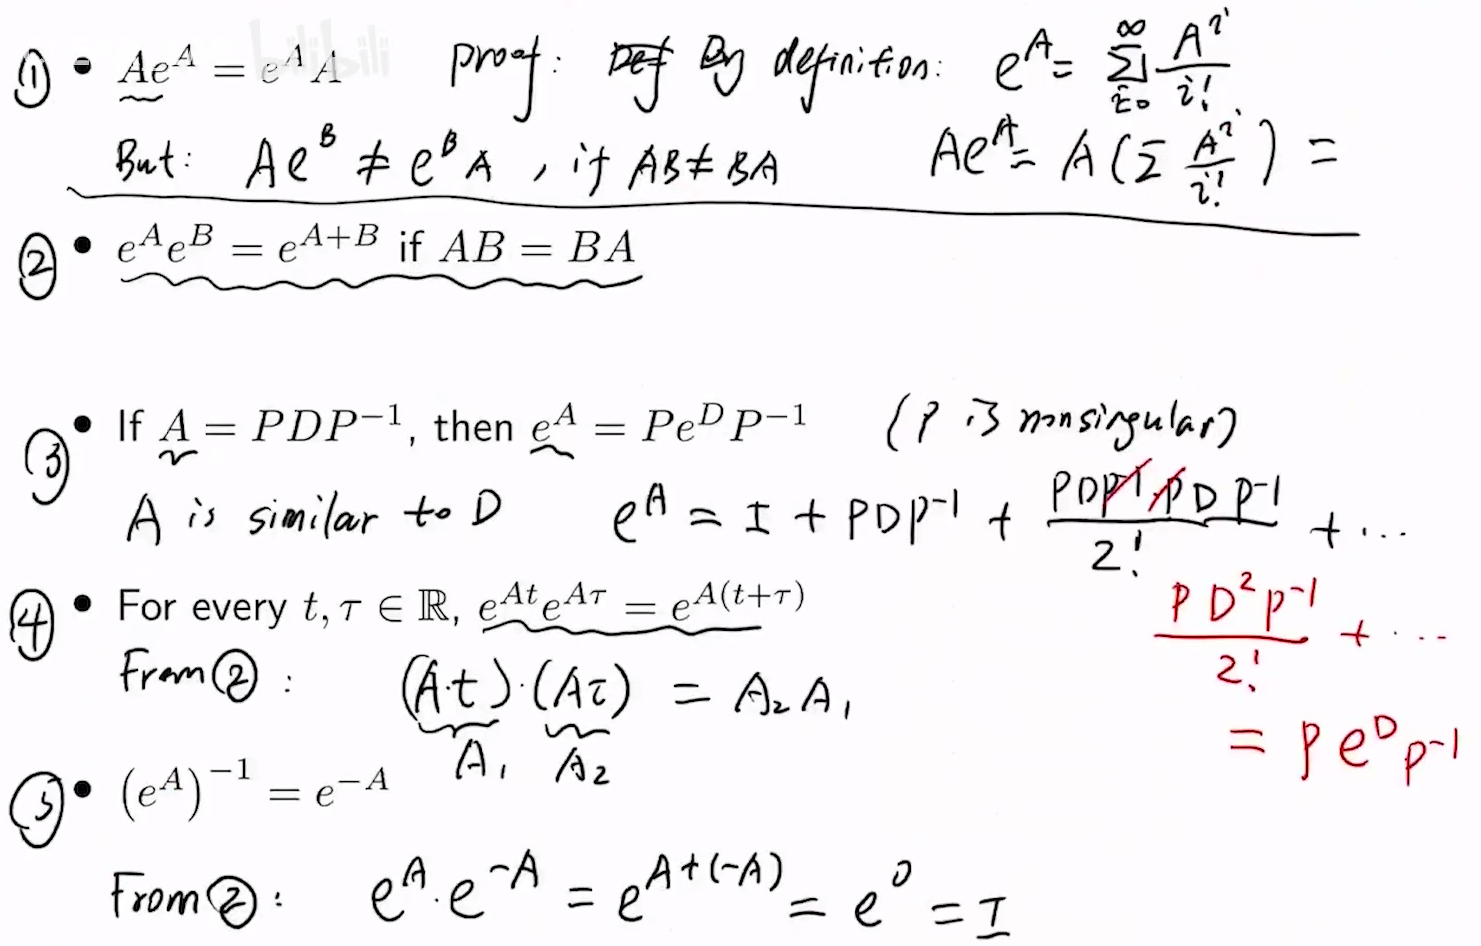 bilibili
① • Ae^A = e^A A   Proof: Def By definition: e^A = ∑_{i=0}^{∞} A^i / i!
But: Ae^B ≠ e^B A , if AB ≠ BA   Ae^A = A (Σ A^i / i! ) =
② • e^A e^B = e^{A+B} if AB = BA
③ • If A = PDP^{-1}, then e^A = Pe^D P^{-1}   (P is nonsingular)
A is similar to D   e^A = I + PDP^{-1} + PDP^{-1}PDP^{-1} / 2! + ...
PD^2P^{-1} / 2! + ...
= Pe^D P^{-1}
④ • For every t, τ ∈ ℝ, e^{At}e^{Aτ} = e^{A(t+τ)}
From ② : (A·t)·(Aτ) = A_2 A_1
A_1 A_2
⑤ • (e^A)^{-1} = e^{-A}
From ② : e^A · e^{-A} = e^{A+(-A)} = e^0 = I